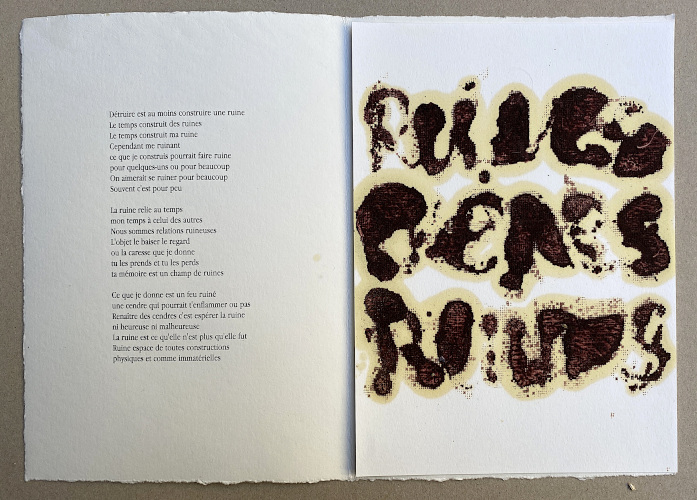 Détruire est au moins construire une ruine
Le temps construit des ruines
Le temps construit ma ruine
Cependant me ruinant
ce que je construis pourrait faire ruine
pour quelques-uns ou pour beaucoup
On aimerait se ruiner pour beaucoup
Souvent c'est pour peu
La ruine relie au temps
mon temps à celui des autres
Nous sommes relations ruineuses
L'objet le baiser le regard
ou la caresse que je donne
tu les prends et tu les perds
ta mémoire est un champ de ruines
Ce que je donne est un feu ruiné
une cendre qui pourrait t'enflammer ou pas
Renaître des cendres c'est espérer la ruine
ni heureuse ni malheureuse
La ruine est ce qu'elle n'est plus qu'elle fut
Ruine espace de toutes constructions
physiques et comme immatérielles